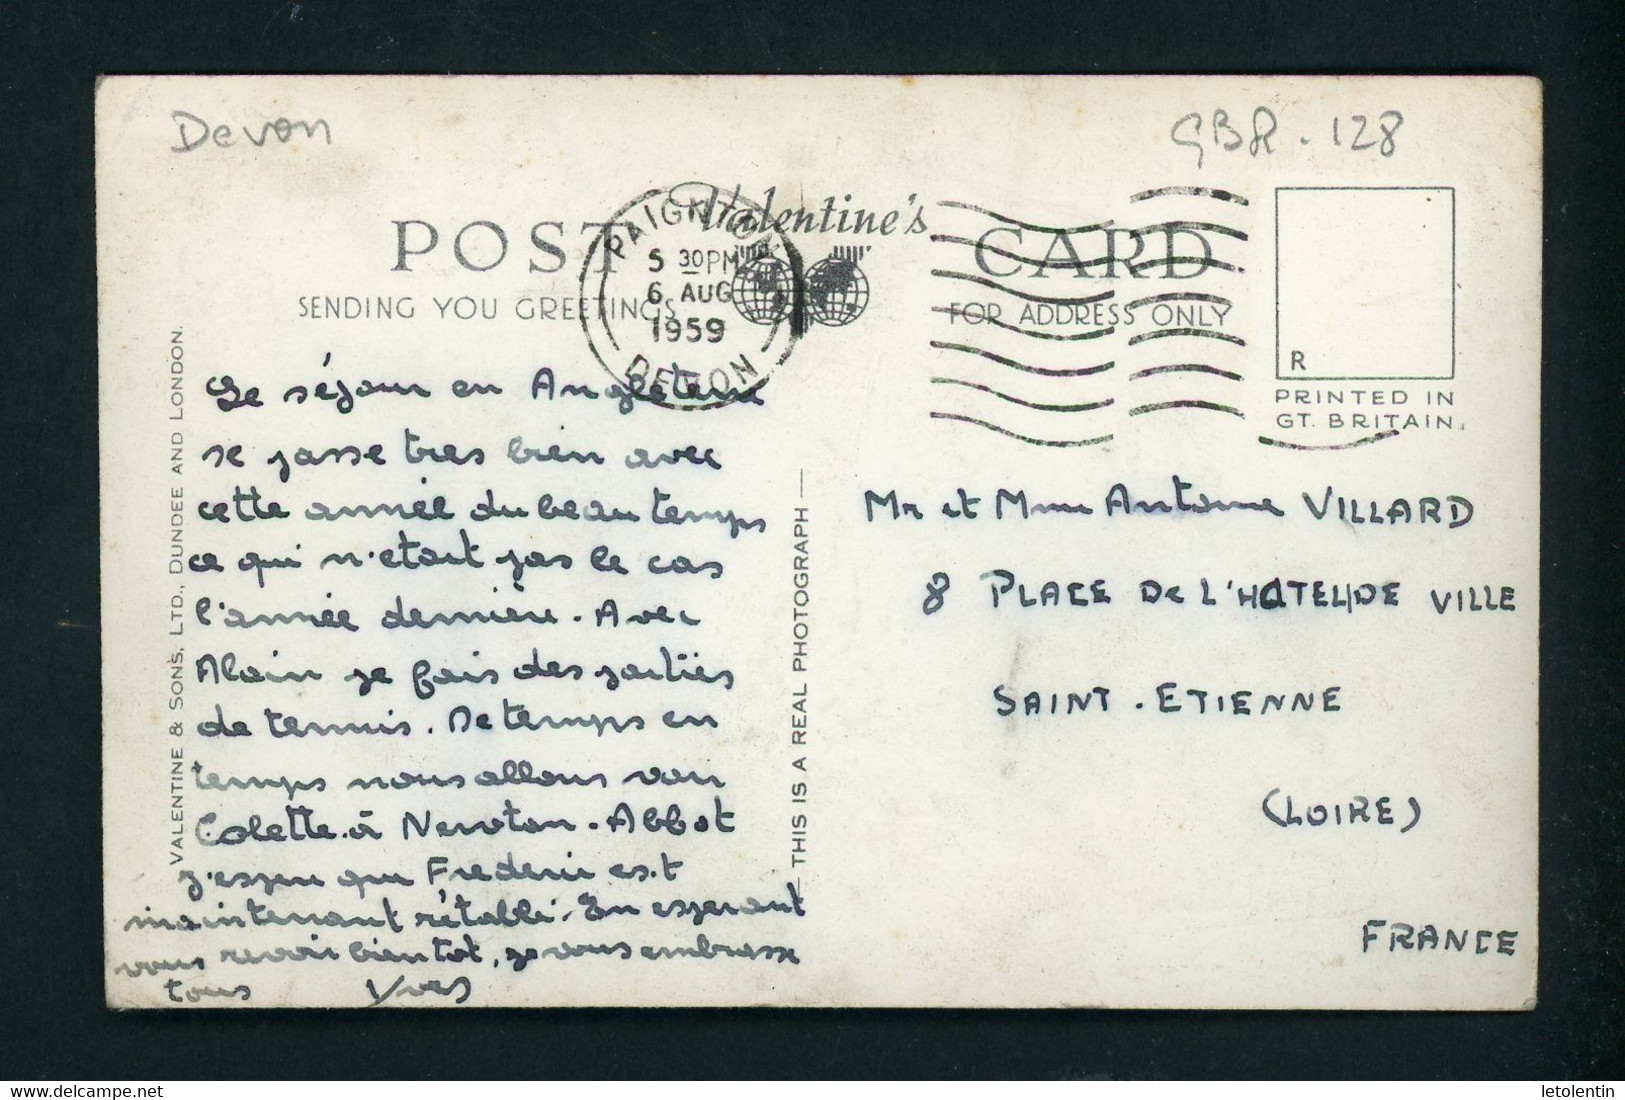 Devon
GBR. 128
POST CARD
Valentine's
SENDING YOU GREETINGS
FOR ADDRESS ONLY
PAIGNTON
5 30 PM
6 AUG
1959
DEVON
R
PRINTED IN
GT. BRITAIN.
VALENTINE & SONS, LTD., DUNDEE AND LONDON.
Le séjour en Angleterre
se passe tres bien avec
cette année du beau temps
ce qui n'etait pas le cas
l'année dernière. Avec
Alain je fais des parties
de tennis. De temps en
temps nous allons voir
Colette à Newton. Abbot
J'espere que Frederic est
maintenant rétabli. En esperant
vous revoir bientot, je vous embrasse
tous Yves
THIS IS A REAL PHOTOGRAPH
Mr et Mme Antoine VILLARD
8 PLACE De L'HOTEL DE VILLE
SAINT. ETIENNE
(LOIRE)
FRANCE
www.delcampe.net
letolentin